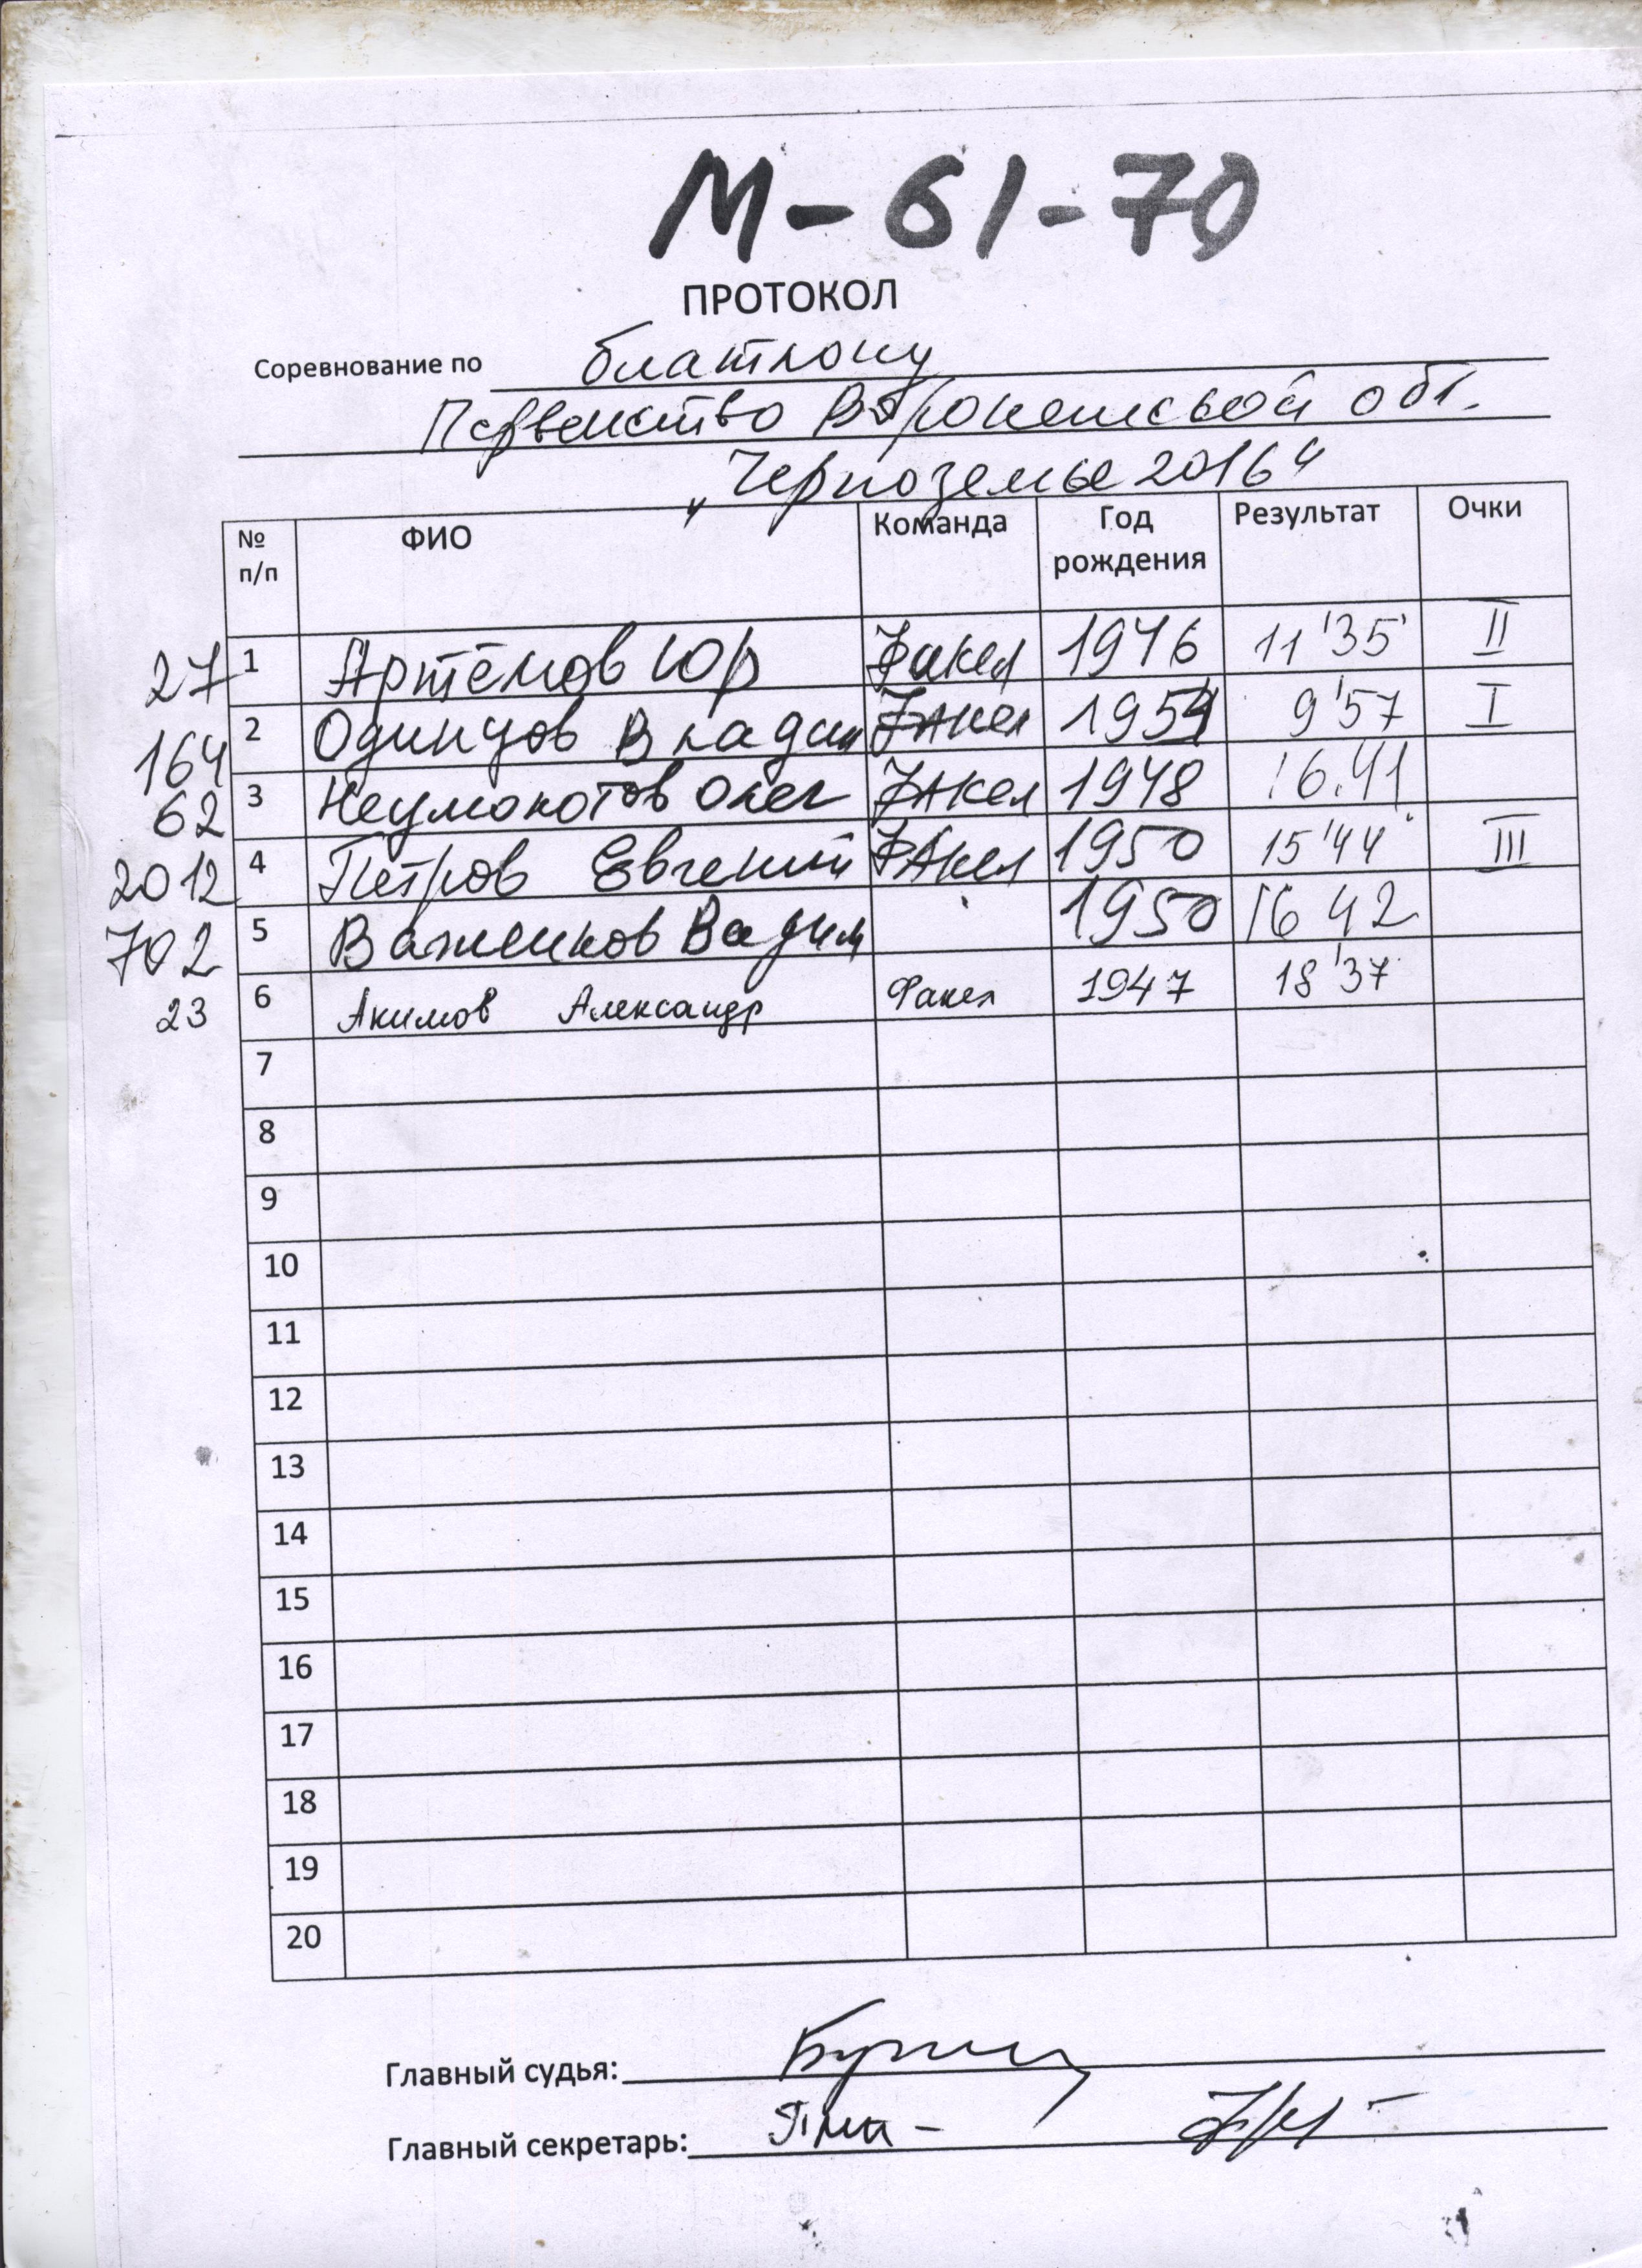 М-61-70
ПРОТОКОЛ
Соревнование по биатлону
Первенство Воронежской обл.
„Черноземье 2016“
№ п/п ФИО Команда Год рождения Результат Очки
27 1 Артёмов Юр Факел 1946 11'35' II
164 2 Одинцов Владим Факел 1954 9'57 I
62 3 Неумолотов Олег Факел 1948 16.41
2012 4 Петров Евгений Факел 1950 15'44 III
702 5 Важенков Вадим 1950 16 42
23 6 Акимов Александр Факел 1947 18'37
7
8
9
10
11
12
13
14
15
16
17
18
19
20
Главный судья:
Главный секретарь: